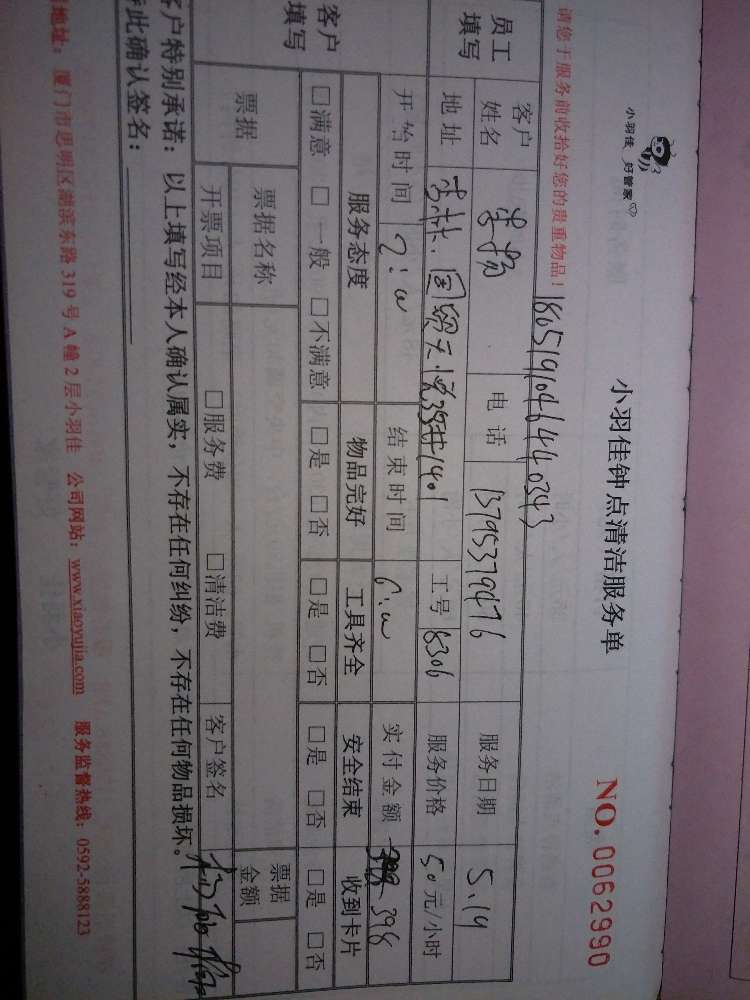 小羽佳 好管家
小羽佳钟点清洁服务单
NO. 0062990
请您于服务前收拾好您的贵重物品！
员工填写
客户姓名 电话 13795379476 服务日期 5.19
地址 工号 8306 服务价格 50元/小时
开始时间 结束时间 实付金额 398
客户填写
服务态度 物品完好 工具齐全 安全结束 收到卡片
□满意 □一般 □不满意 □是 □否 □是 □否 □是 □否 □是 □否
票据 票据名称 □服务费 □清洁费 票据金额
开票项目 客户签名
客户特别承诺：以上填写经本人确认属实，不存在任何纠纷，不存在任何物品损坏。
此确认签名：
地址：厦门市思明区湖滨东路319号A幢2层小羽佳 公司网站：www.xiaoyujia.com 服务监督热线：0592-5888123